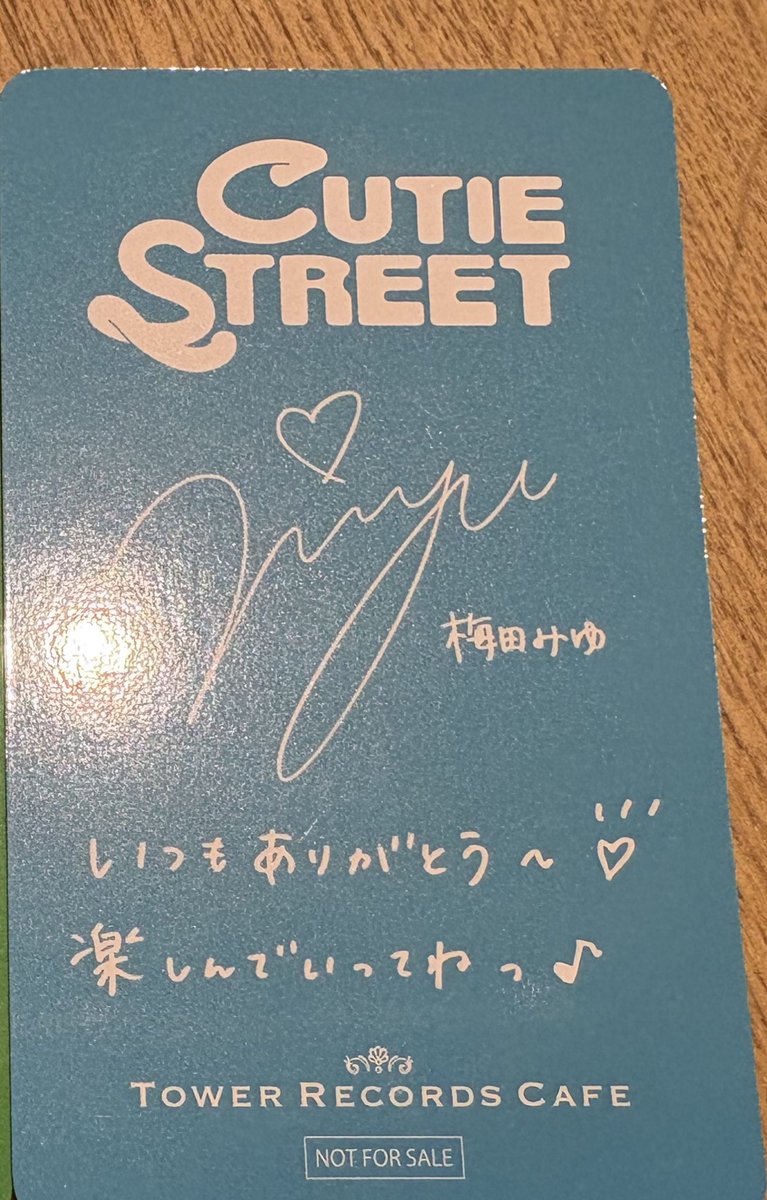 CUTIE
STREET
miyu
梅田みゆ
いつもありがとう～♡
楽しんでいってねっ♪
TOWER RECORDS CAFE
NOT FOR SALE